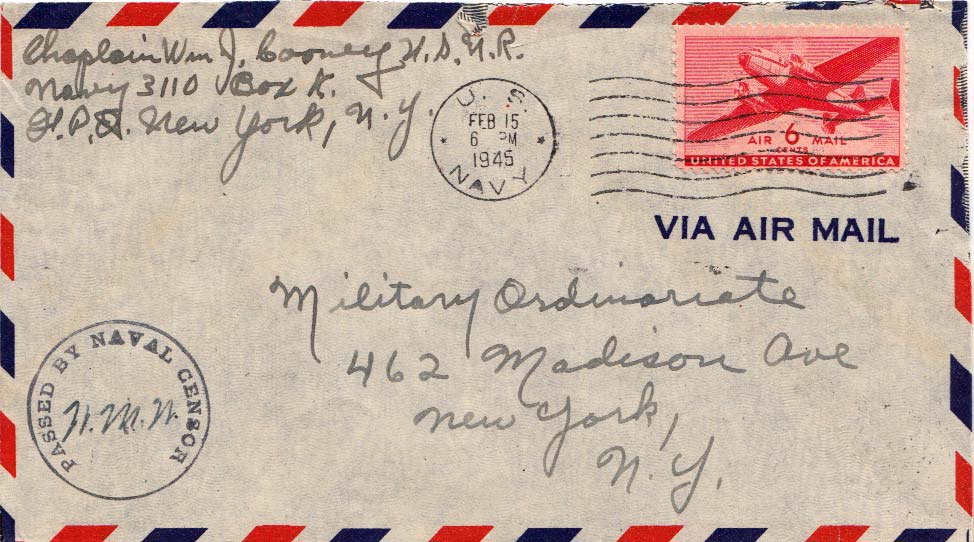 Chaplain Wm J. Cooney U.S.N.R.
Navy 3110 Box K.
F.P.O. New York, N.Y.
U. S.
FEB 15
6 PM
1945
NAVY
AIR 6 MAIL
CENTS
UNITED STATES OF AMERICA
VIA AIR MAIL
Military Ordinariate
462 Madison Ave
New York,
N.Y.
PASSED BY NAVAL CENSOR